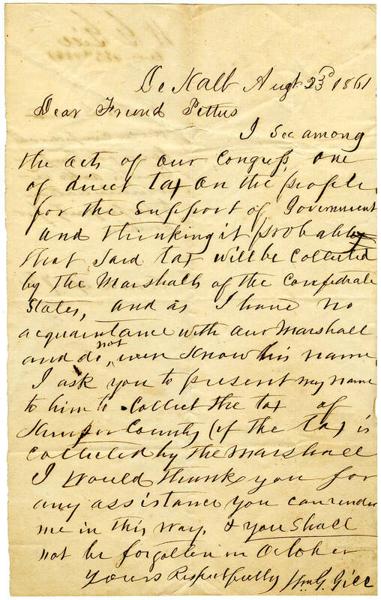 De Kalb Augt 23d 1861
Dear Friend Pettus
I See among
the acts of our Congress, one
of direct tax on the people
for the Support of Government
and thinking it probable
that Said tax will be Collected
by the Marshalls of the Confederate
States, and as I have no
acquaintance with our Marshall
and do not even Know his name
I ask you to present my name
to him to Collect the tax of
Kemper County (if the tax is
Collected by the Marshall
I Would thank you for
any assistance you can render
me in this way, & you Shall
not be forgotten in October
Yours Respectfully Wm G. Gill